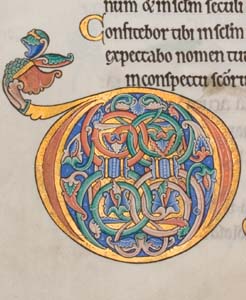 num & in sclm seculi
Confitebor tibi in sclm
expectabo nomen tuu
in conspectu scōr